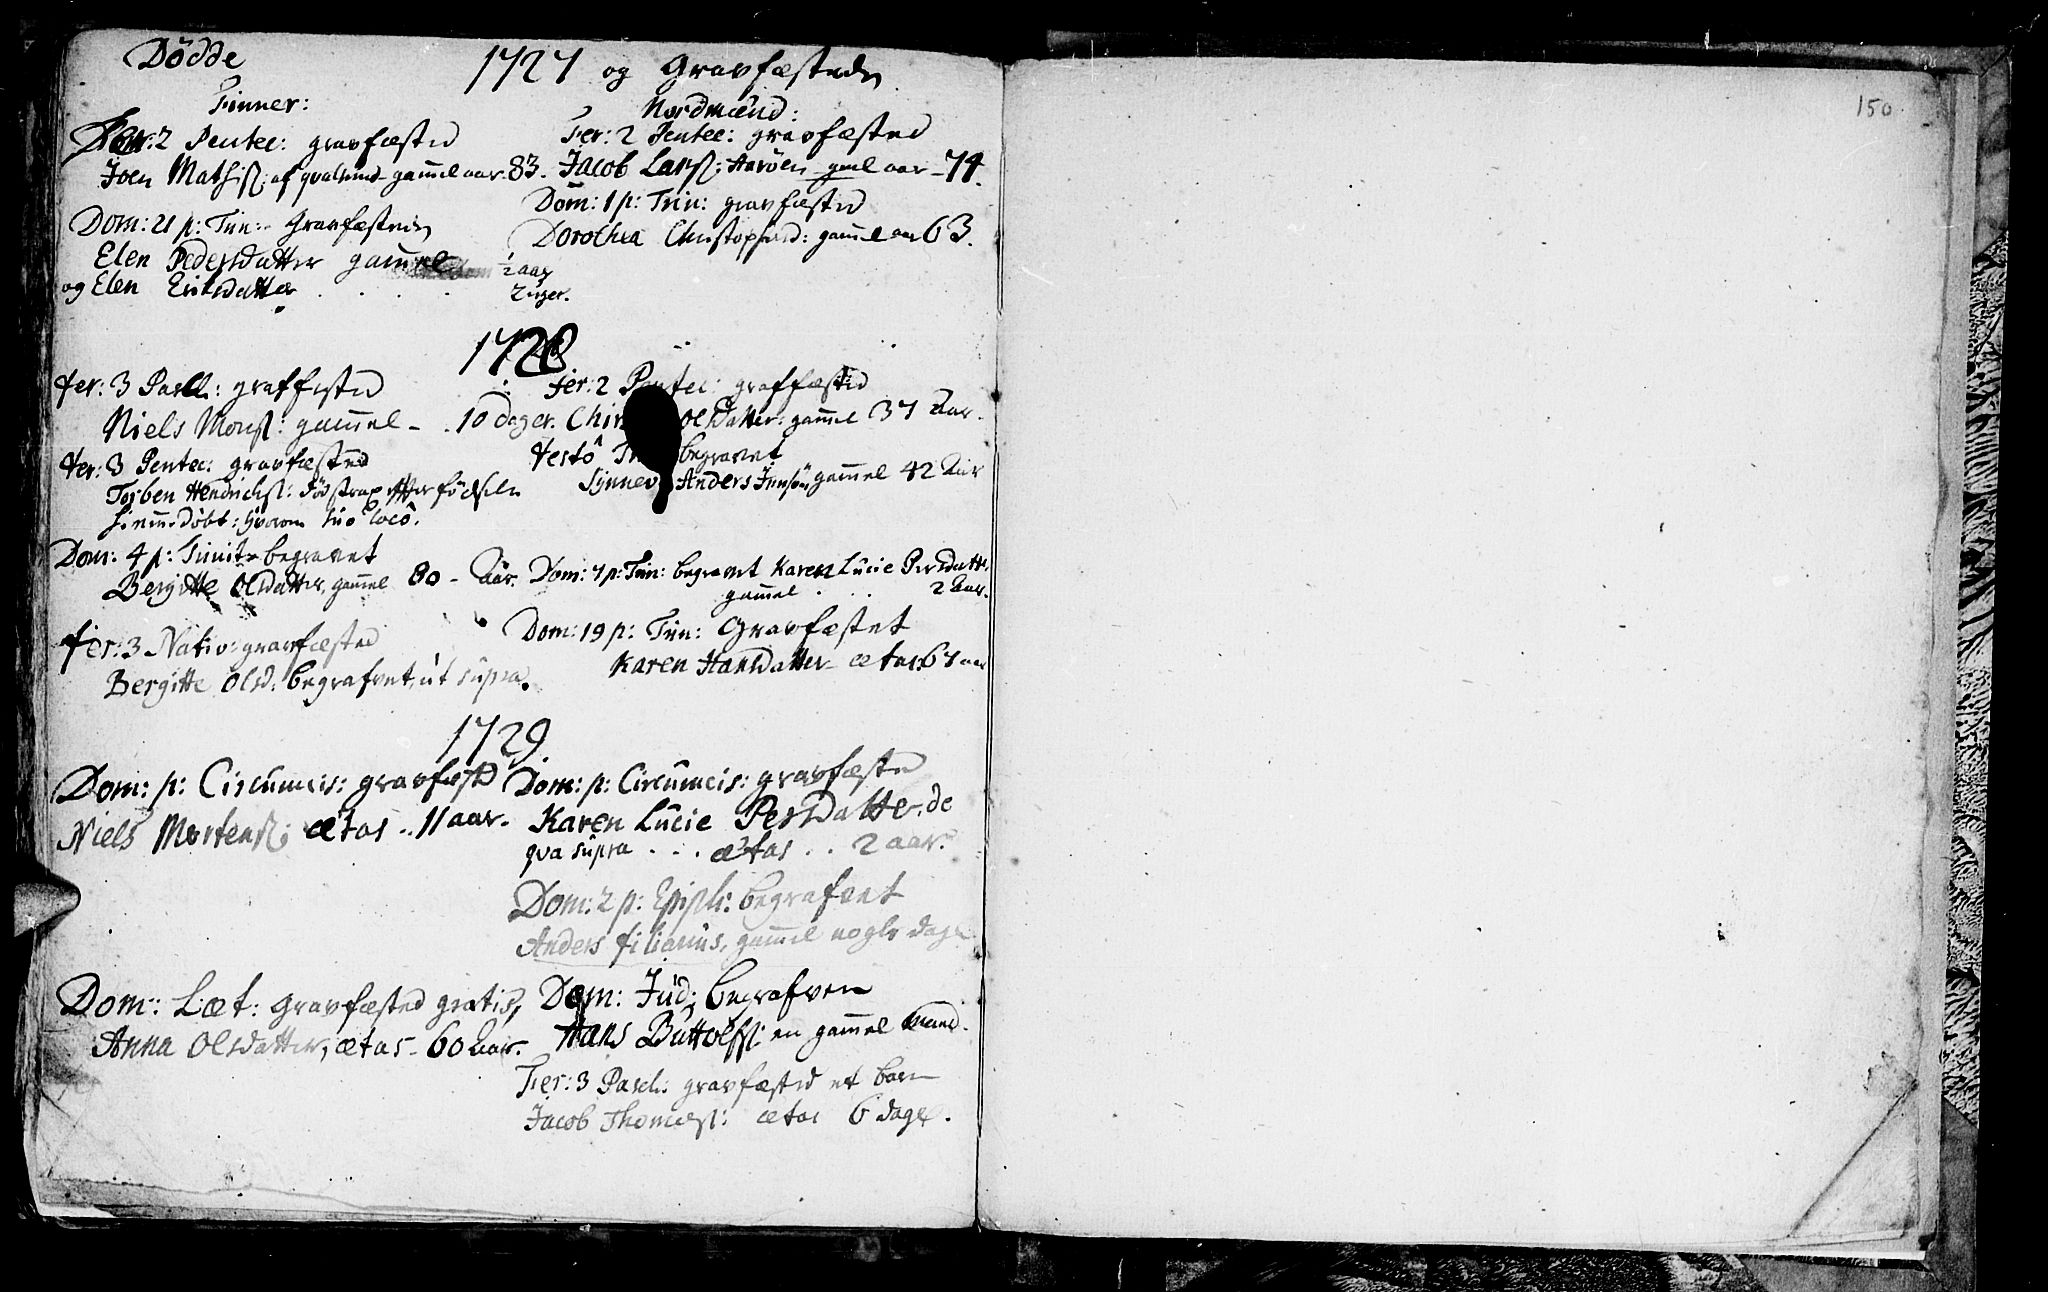 Dödde 1727 og Gravfæstede
Finner:
Fer: 2 Pentec: gravfæsted
Joen Mathiss: af qualsund gam̄el aar. 83.
Dom: 21 p: Trin: Gravfæstede
Elen Pedersdatter gam̄el ½ aar
og Elen Eriksdatter . . . . 2 uger.
Nordmænd:
Fer: 2 Pentec: gravfæsted
Jacob Larss: Aarøen gaml aar 74.
Dom: 1 p: Trin: gravfæsted
Dorothea Christophersd: gam̄el aar 63.
1728
fer: 3 Pasch: graffæsted
Niels Monss: gam̄el - . 10 dager.
fer: 3 Pentec: gravfæsted
Torben Hendrichss: död strax efter födselen
hiem̄edöbt: hvorom suo locô.
Dom: 4 p: Trinit begravet
Bergitte Olsdatter, gam̄el 80 - Aar.
fer: 3 Nativ: gravfæsted
Bergitte Olsd: begrafvet, ut supra.
fer: 2 Pentec: graffæsted
Olsdatter: gam̄el 37 Aar.
festô begravet
Anders Jensøn gam̄el 42 Aar
Dom: 7 p: Trin: begravet Karen Lucie Persdatter
gam̄el . . 2 Aar.
Dom: 19 p: Trin: Gravfæstet
Karen Hansdatter ætas. 67 aar
1729
Dom: p: Circumcis: gravfæsted
Niels Mortenss; ætas .. 11 aar.
Dom: Læt: gravfæsted gratis,
Anna Olsdatter, ætas - 60 Aar.
Dom: p: Circumcis: gravfæsted
Karen Lucie Persdatter, de
qva supra . . . ætas . . 2 aar.
Dom: 2 p: Epiph: begrafvet
Anders filianus, gam̄el nogle dage
Dom: Jud: begrafven
Hans Buttolfs: en gam̄el Mand.
Fer: 3 Pasch: gravfæsted et barn
Jacob Thomæss: ætas 6 dage.
150